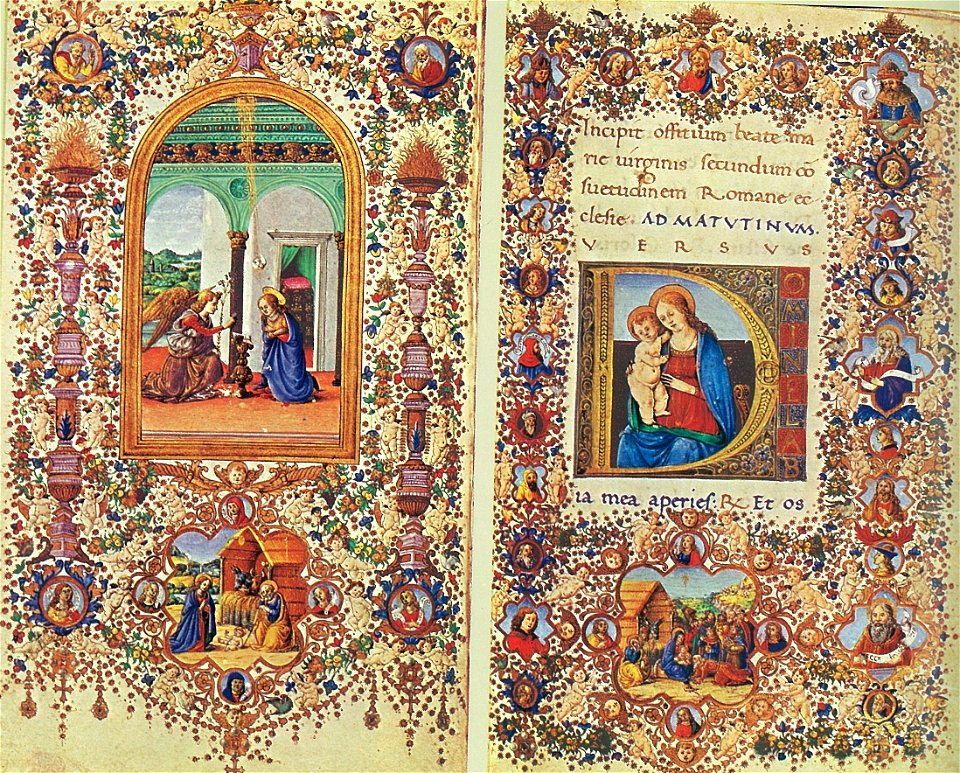 Incipit offitium beate ma
rie uirginis secundum cō
suetudinem Romane ec
clesie. AD MATUTINUM.
VERSUS
D
OMINE LAB
ia mea aperies. R Et os
ECCE